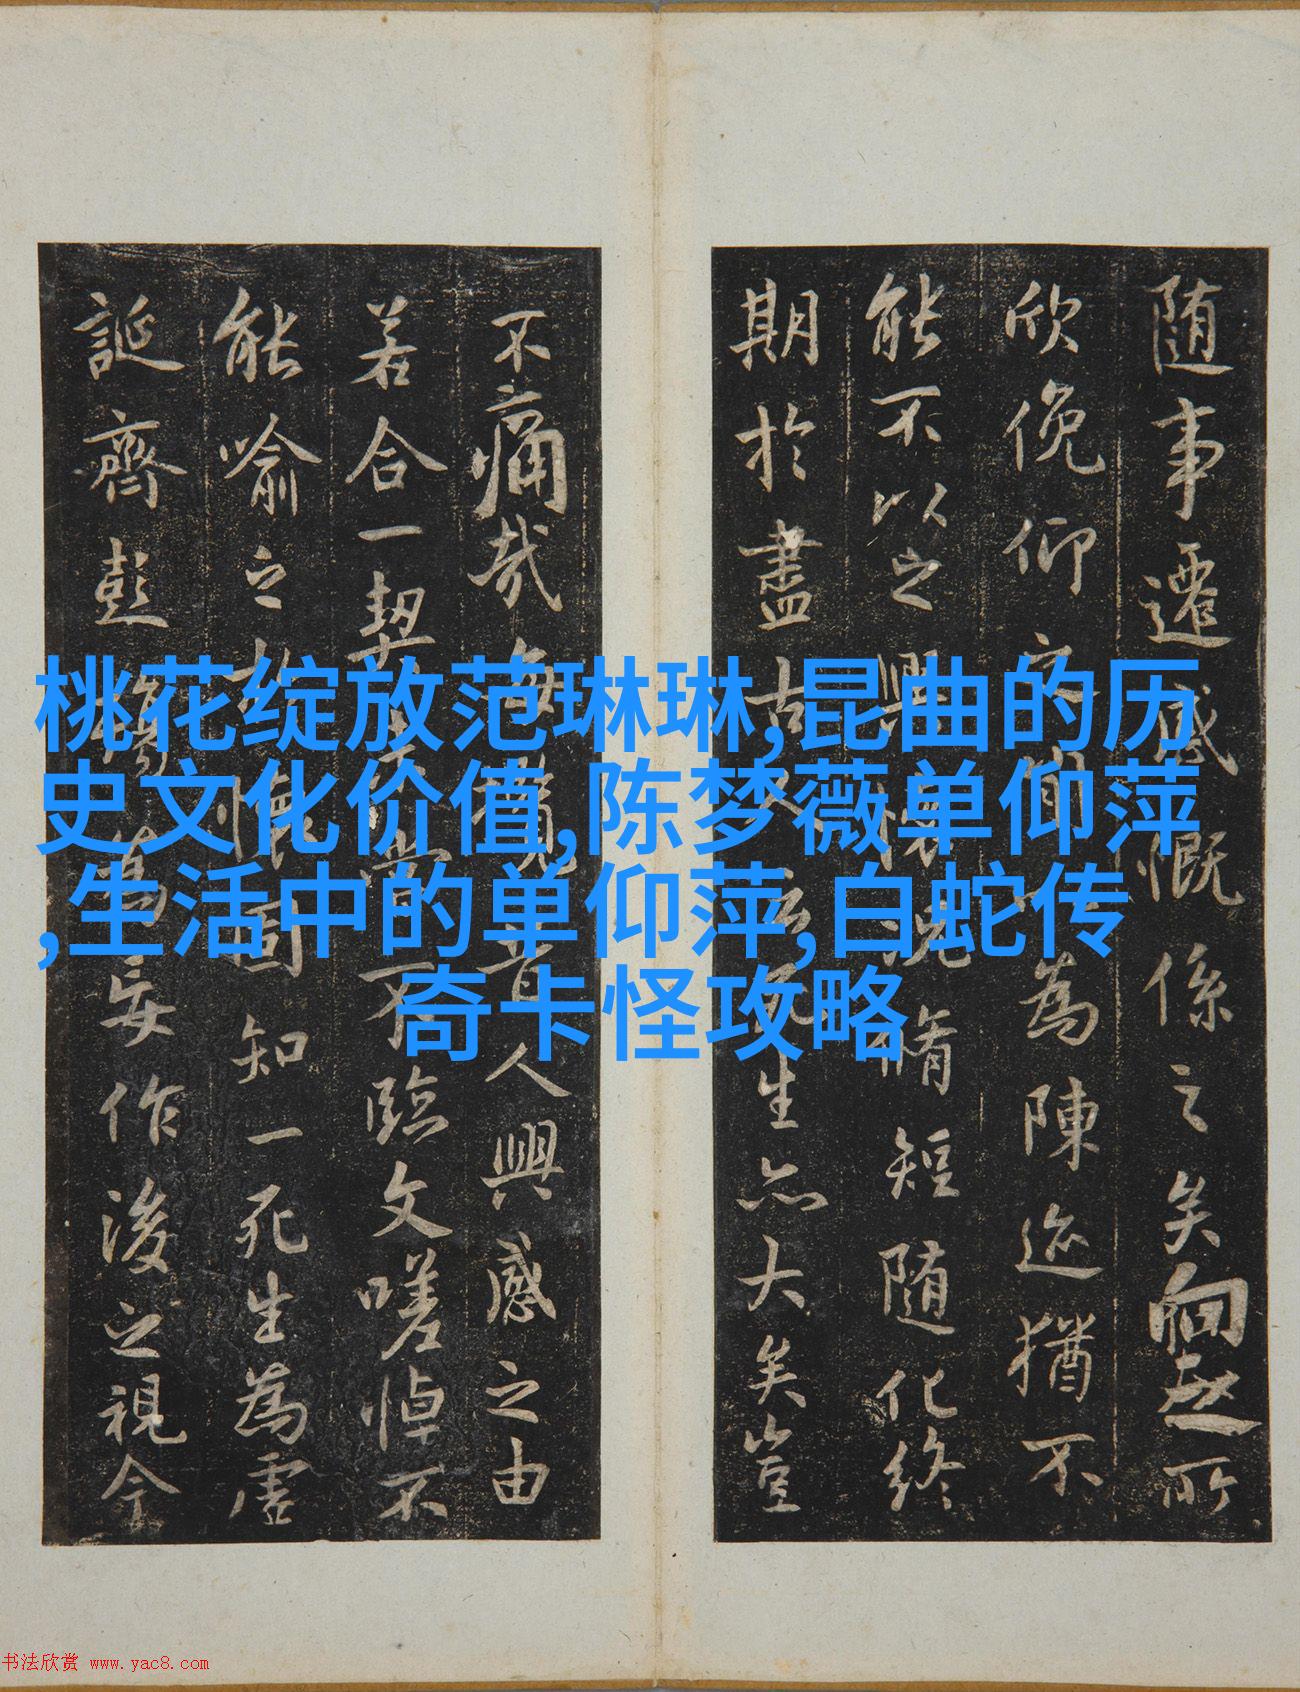 桃花绽放范琳琳,昆曲的历
史文化价值,陈梦薇单仰萍
,生活中的单仰萍,白蛇传
奇卡怪攻略
随事遷感慨係之矣向之所
欣俛仰之間以為陳迹猶不
能不以之興懷況脩短随化終
期於盡古人云死生亦大矣豈
不痛哉每攬昔人興感之由
若合一契未嘗不臨文嗟悼不
能喻之於懷固知一死生為虛
誕齊彭殤為妄作後之視今
书法欣赏 www.yac8.com